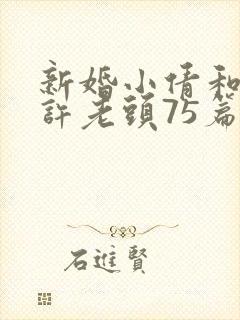 新婚小倩和
許老頭75篇
石進賢